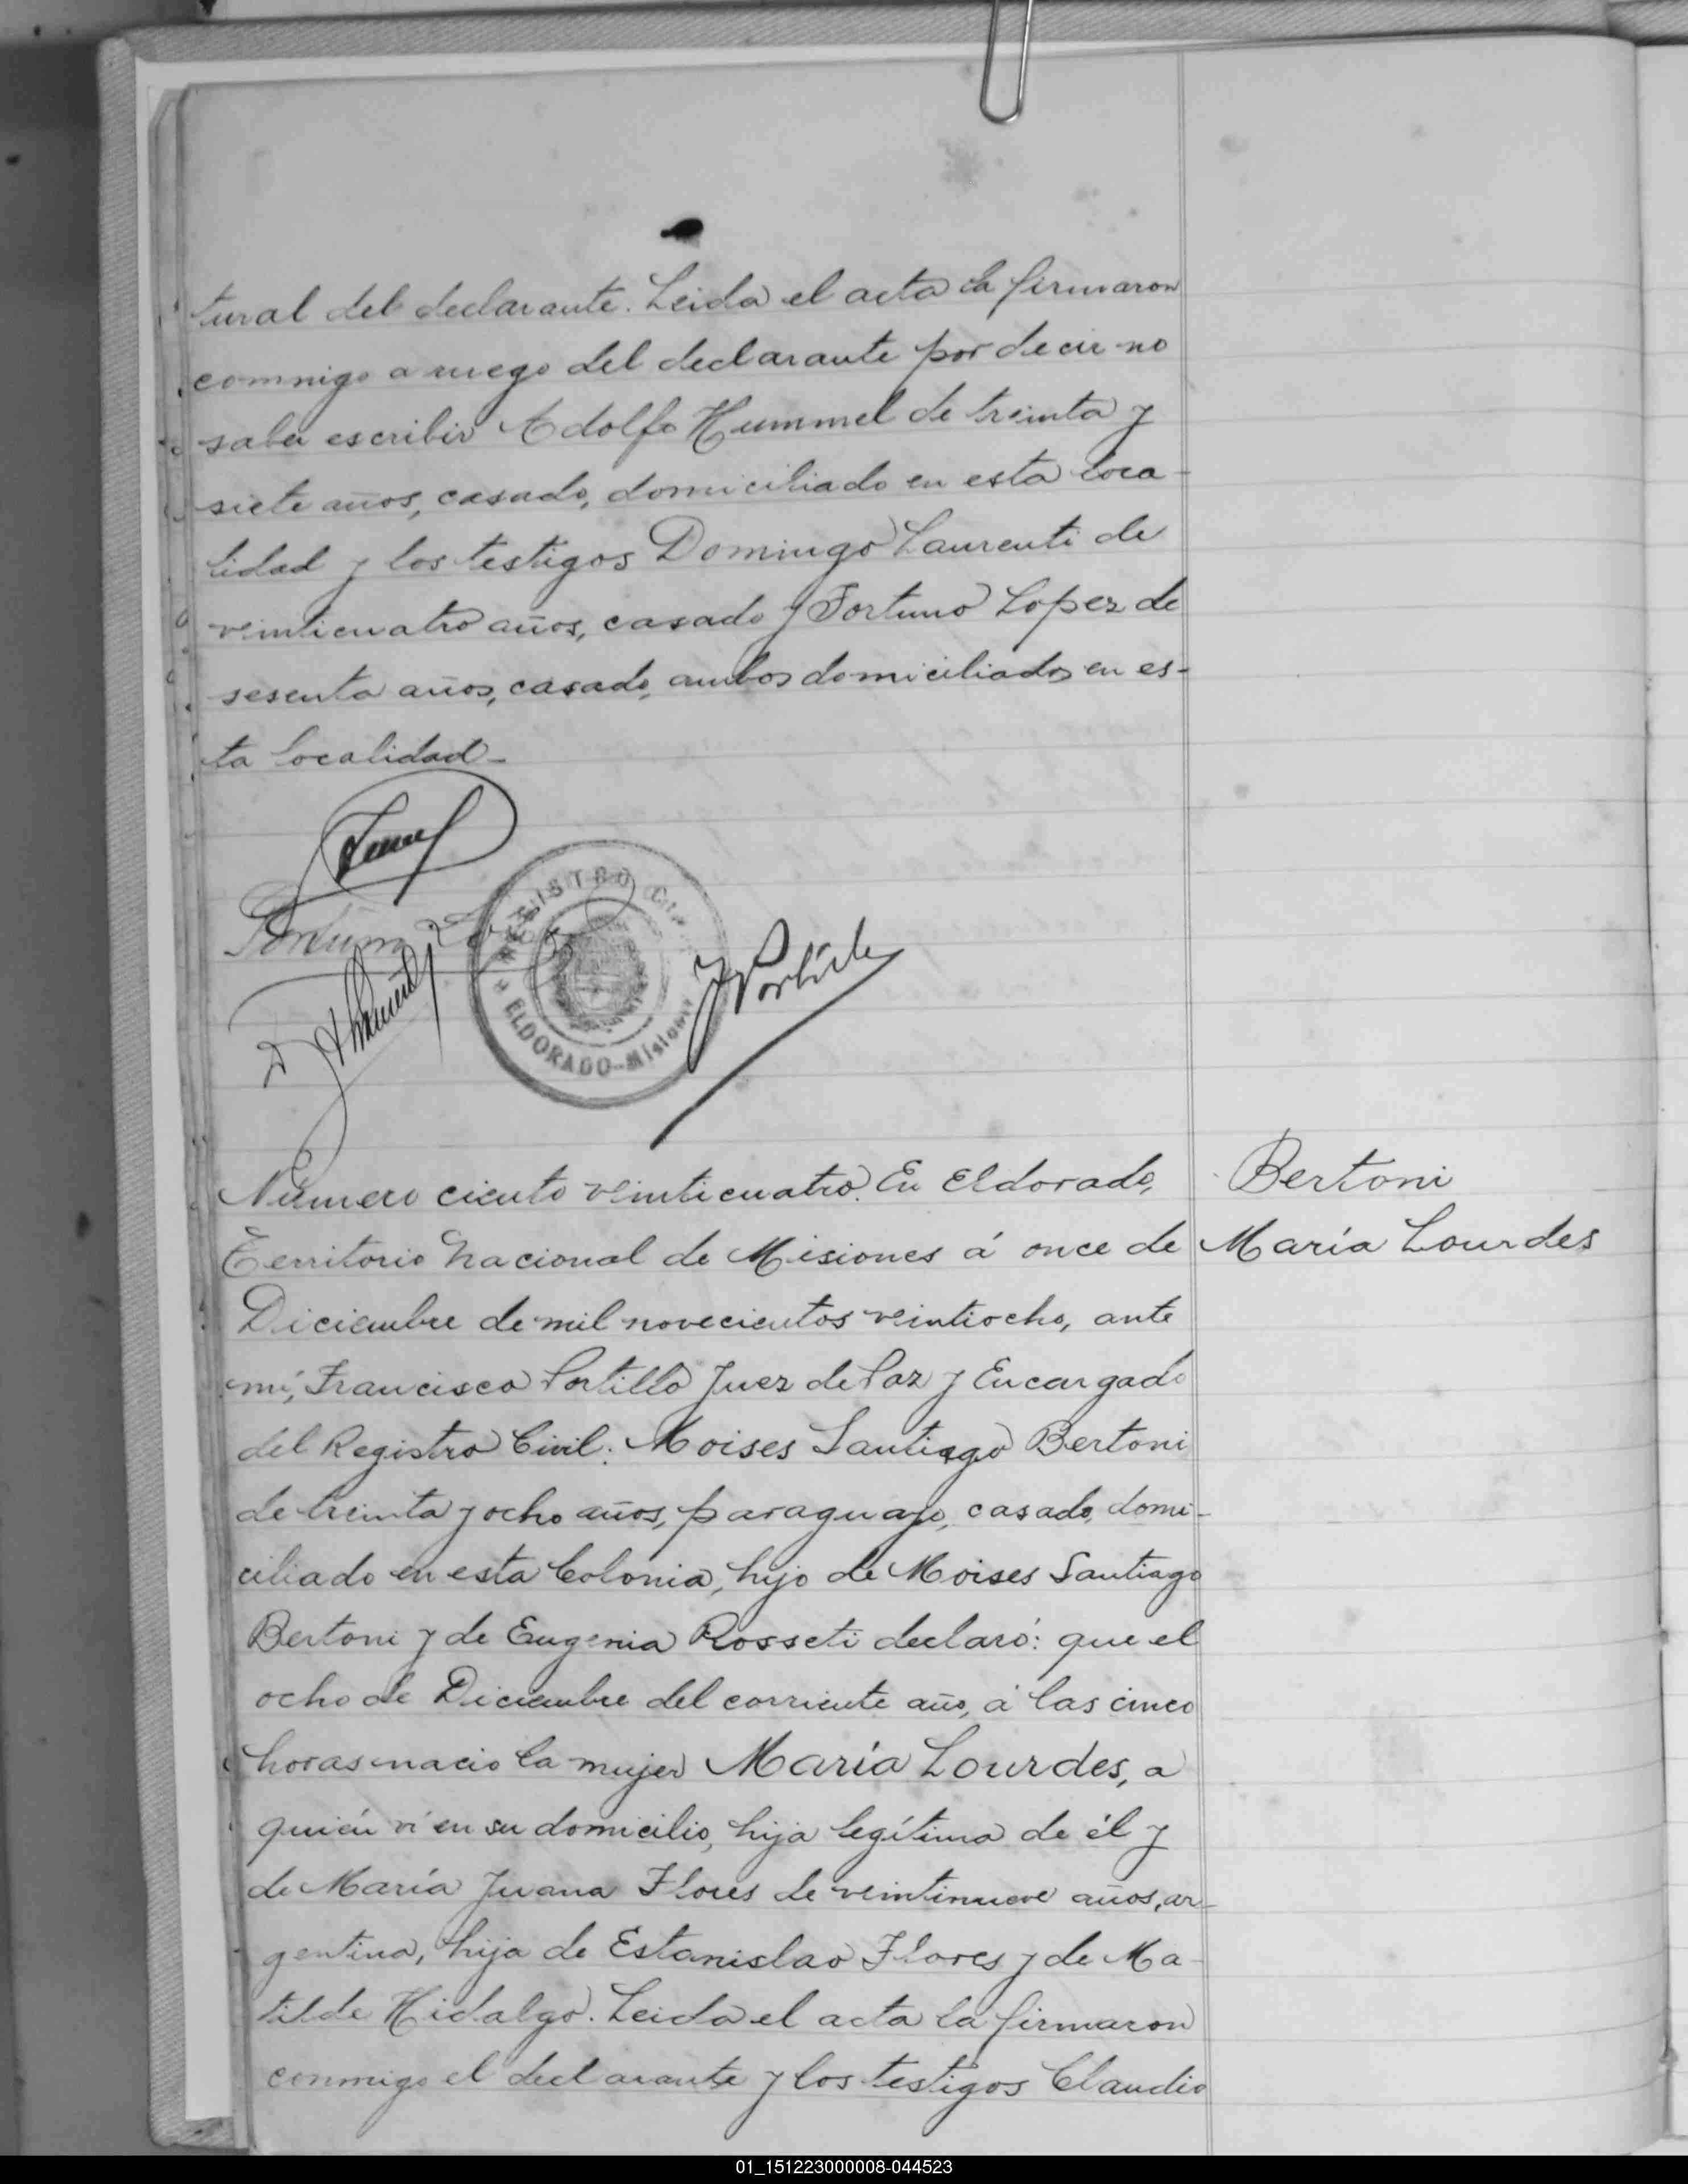 tural del declarante. Leida el acta la firmaron
commigo a ruego del declarante por decir no
saber escribir Adolfo Hummel de treinta y
siete años, casado, domiciliado en esta loca-
lidad y los testigos Domingo Laurenti de
veinticuatro años, casado y Fortuno Lopez de
sesenta años, casado, ambos domiciliados en es-
ta localidad-
REGISTRO
ELDORADO-Misiones
FPortillo
Número ciento veinticuatro. En Eldorado,
Territorio Nacional de Misiones á once de
Diciembre de mil novecientos veintiocho, ante
mí, Francisco Portillo Juez de Paz y Encargado
del Registro Civil: Moises Santiago Bertoni
de treinta y ocho años, paraguayo, casado, domi-
ciliado en esta Colonia, hijo de Moises Santiago
Bertoni y de Eugenia Rosseti declaró: que el
ocho de Diciembre del corriente año, á las cinco
horas nacio la mujer María Lourdes, a
quién ví en su domicilio, hija legítima de él y
de María Juana Flores de veintinueve años, ar-
gentina, hija de Estanislao Flores y de Ma-
tilde Hidalgo. Leida el acta la firmaron
conmigo el declarante y los testigos Claudio
Bertoni
María Lourdes
01_151223000008-044523